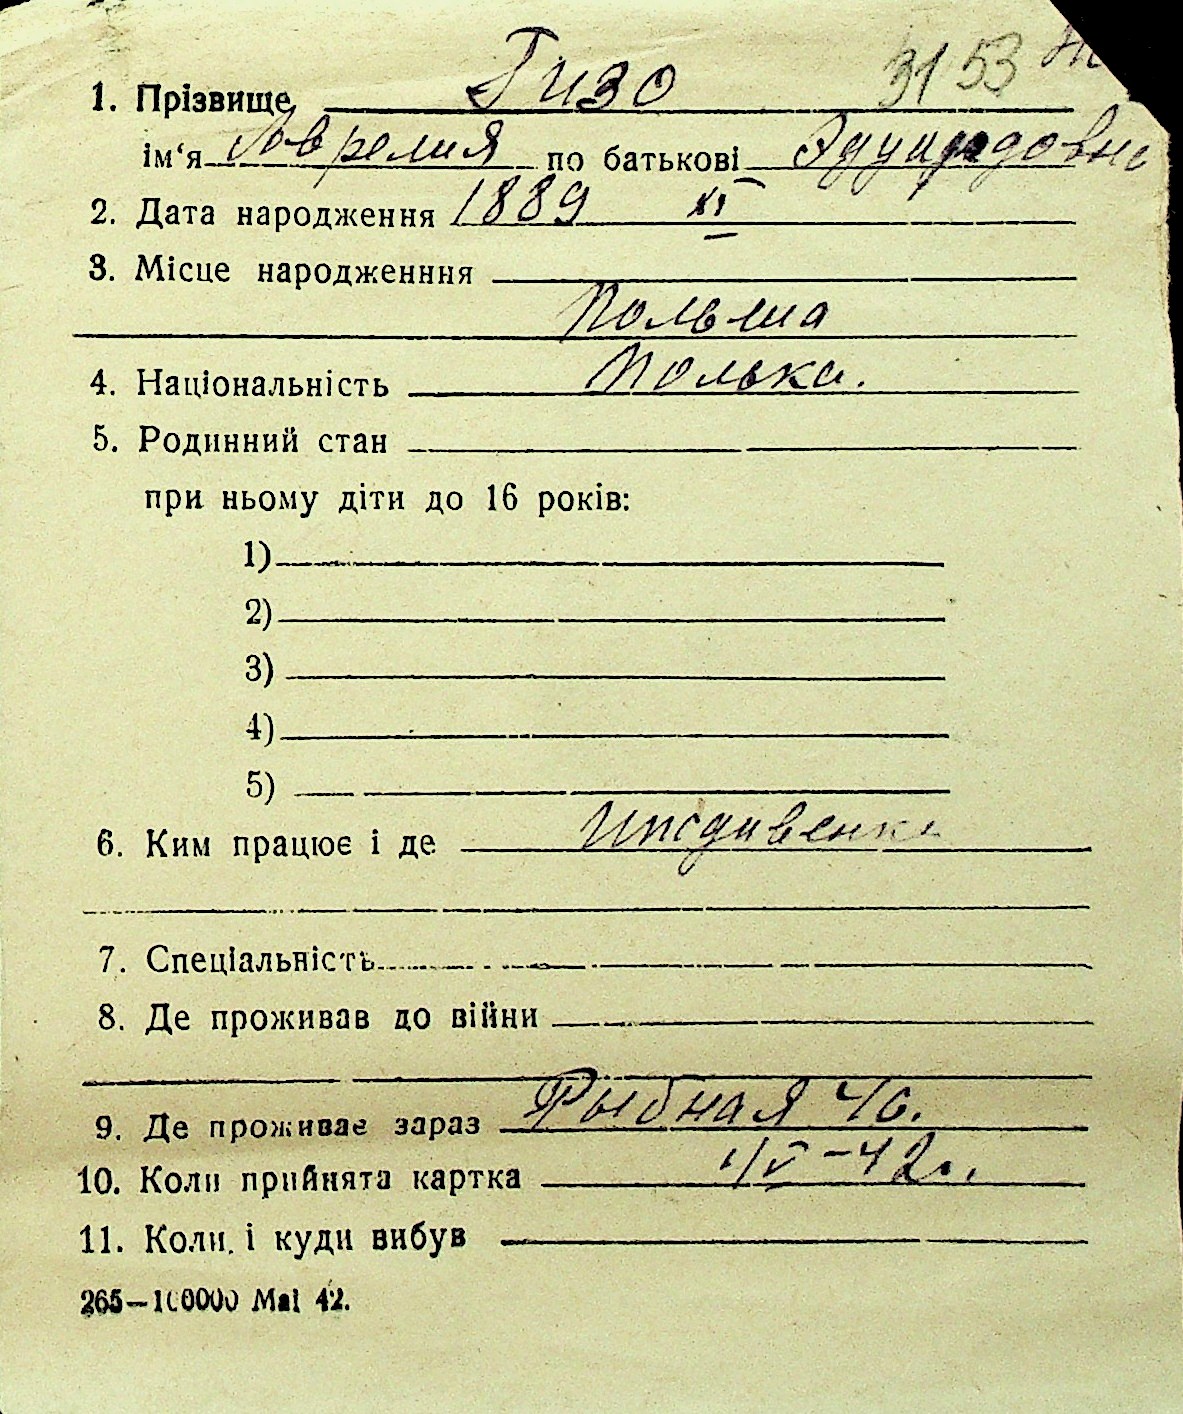 3153
1. Прізвище Гизо
ім‘я Аврелия по батькові Эдуардовна
2. Дата народження 1889 XI
3. Місце народженння
Польша
4. Національність Полька.
5. Родинний стан
при ньому діти до 16 років:
1)
2)
3)
4)
5)
6. Ким працює і де Иждивенка
7. Спеціальність
8. Де проживав до війни
9. Де проживає зараз Рыбная 46.
10. Коли прийнята картка 1/V-42г.
11. Коли. і куди вибув
265—100000 Mai 42.